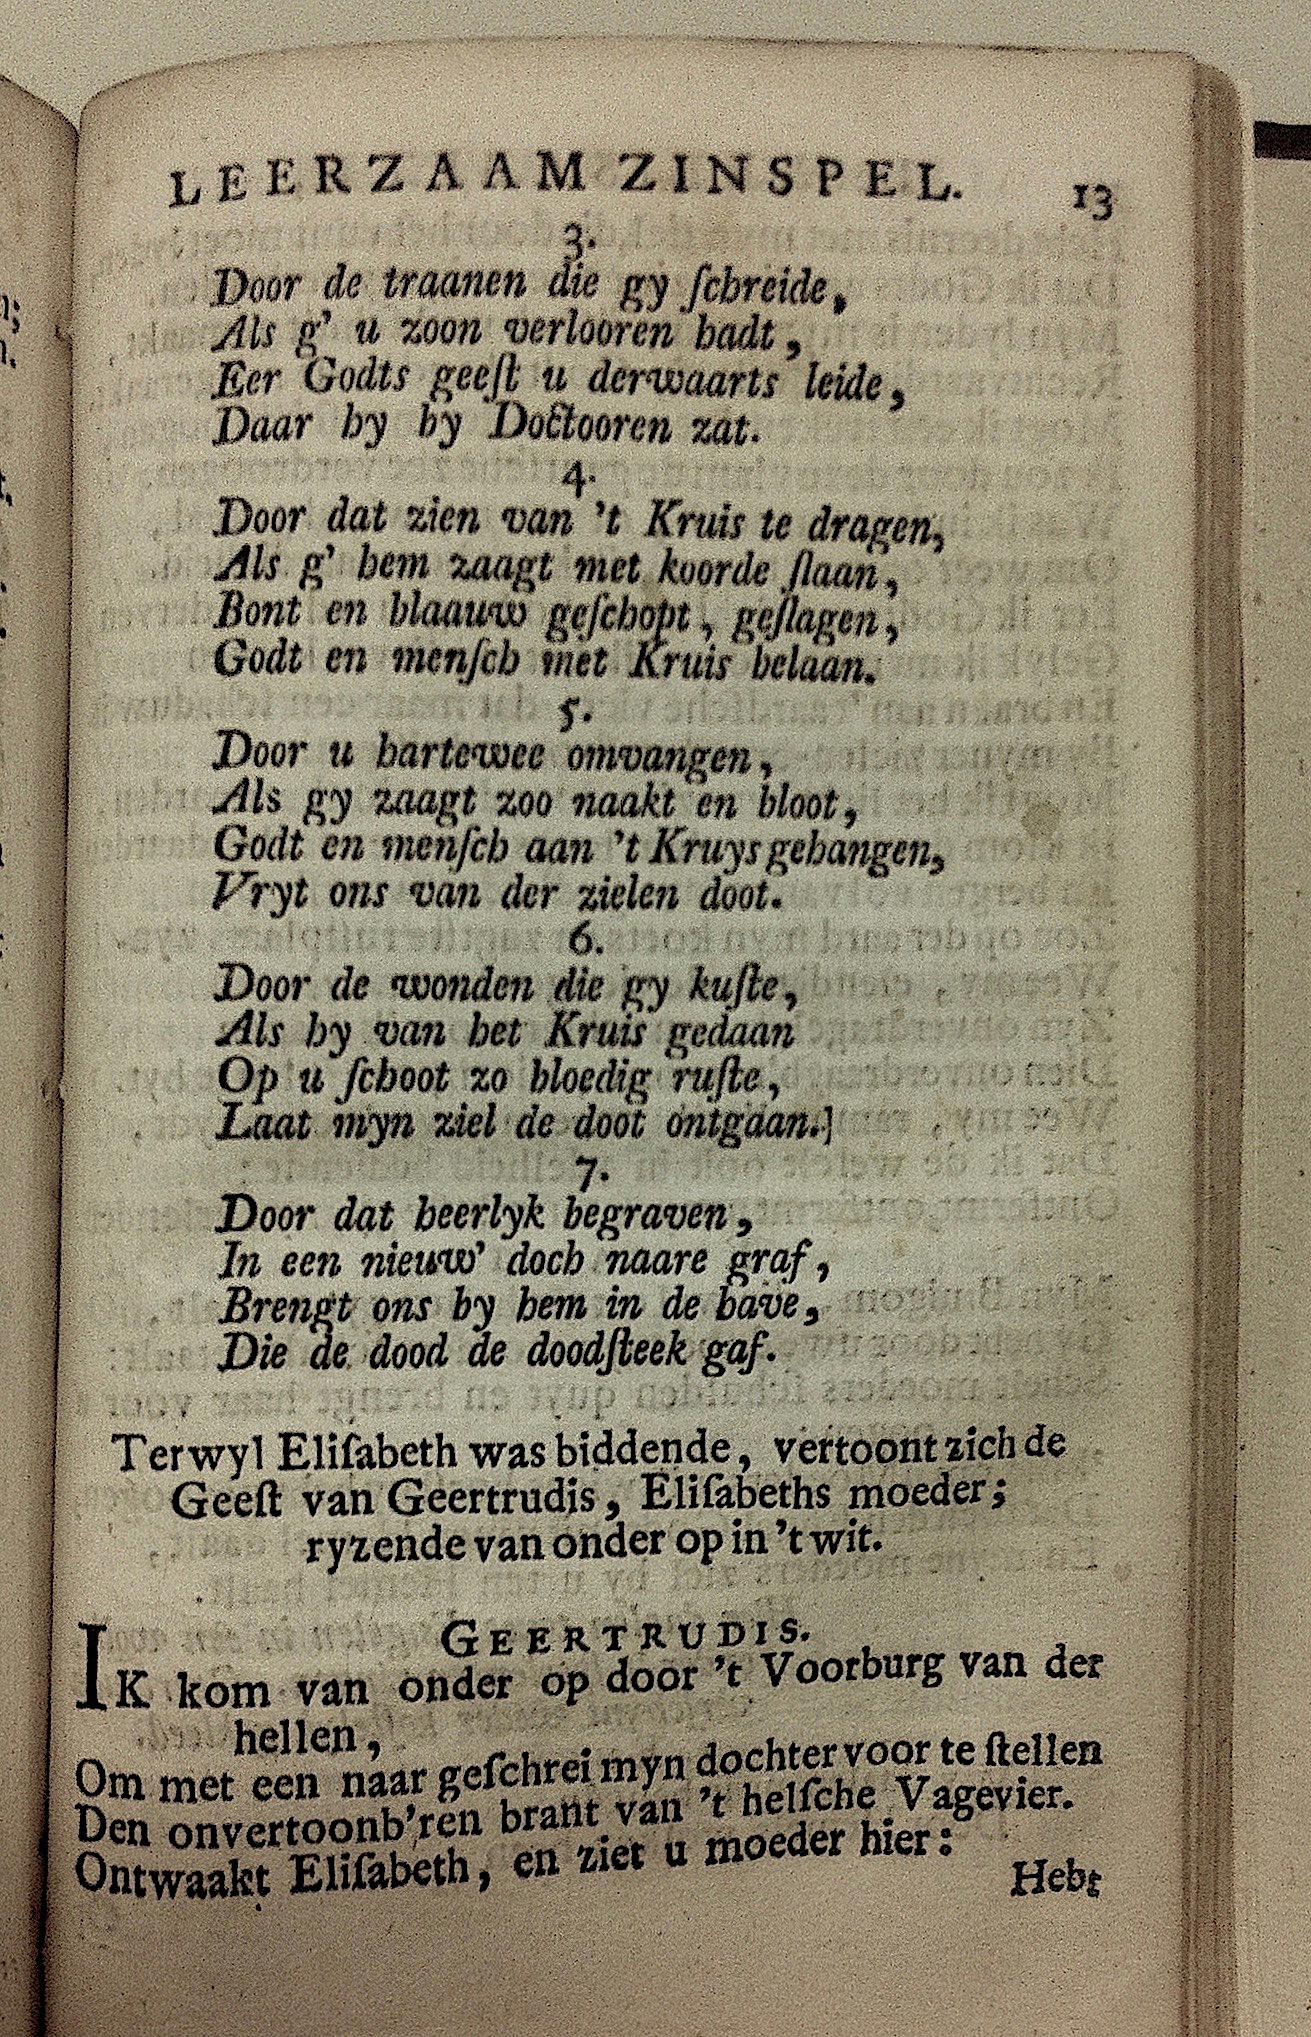 LEERZAAM ZINSPEL. 13
3.
Door de traanen die gy ſchreide,
Als g' u zoon verlooren hadt,
Eer Godts geeſt u derwaarts leide,
Daar hy by Doctooren zat.
4.
Door dat zien van 't Kruis te dragen,
Als g' hem zaagt met koorde ſlaan,
Bont en blaauw geſchopt, geſlagen,
Godt en menſch met Kruis belaan.
5.
Door u hartewee omvangen,
Als gy zaagt zoo naakt en bloot,
Godt en menſch aan 't Kruys gehangen,
Vryt ons van der zielen doot.
6.
Door de wonden die gy kuſte,
Als hy van het Kruis gedaan
Op u ſchoot zo bloedig ruſte,
Laat myn ziel de doot ontgaan.]
7.
Door dat heerlyk begraven,
In een nieuw' doch naare graf,
Brengt ons by hem in de have,
Die de dood de doodſteek gaf.
Terwyl Eliſabeth was biddende, vertoont zich de
Geeſt van Geertrudis, Eliſabeths moeder;
ryzende van onder op in 't wit.
GEERTRUDIS.
IK kom van onder op door 't Voorburg van der
hellen,
Om met een naar geſchrei myn dochter voor te ſtellen
Den onvertoonb'ren brant van 't helſche Vagevier.
Ontwaakt Eliſabeth, en ziet u moeder hier:
Hebt